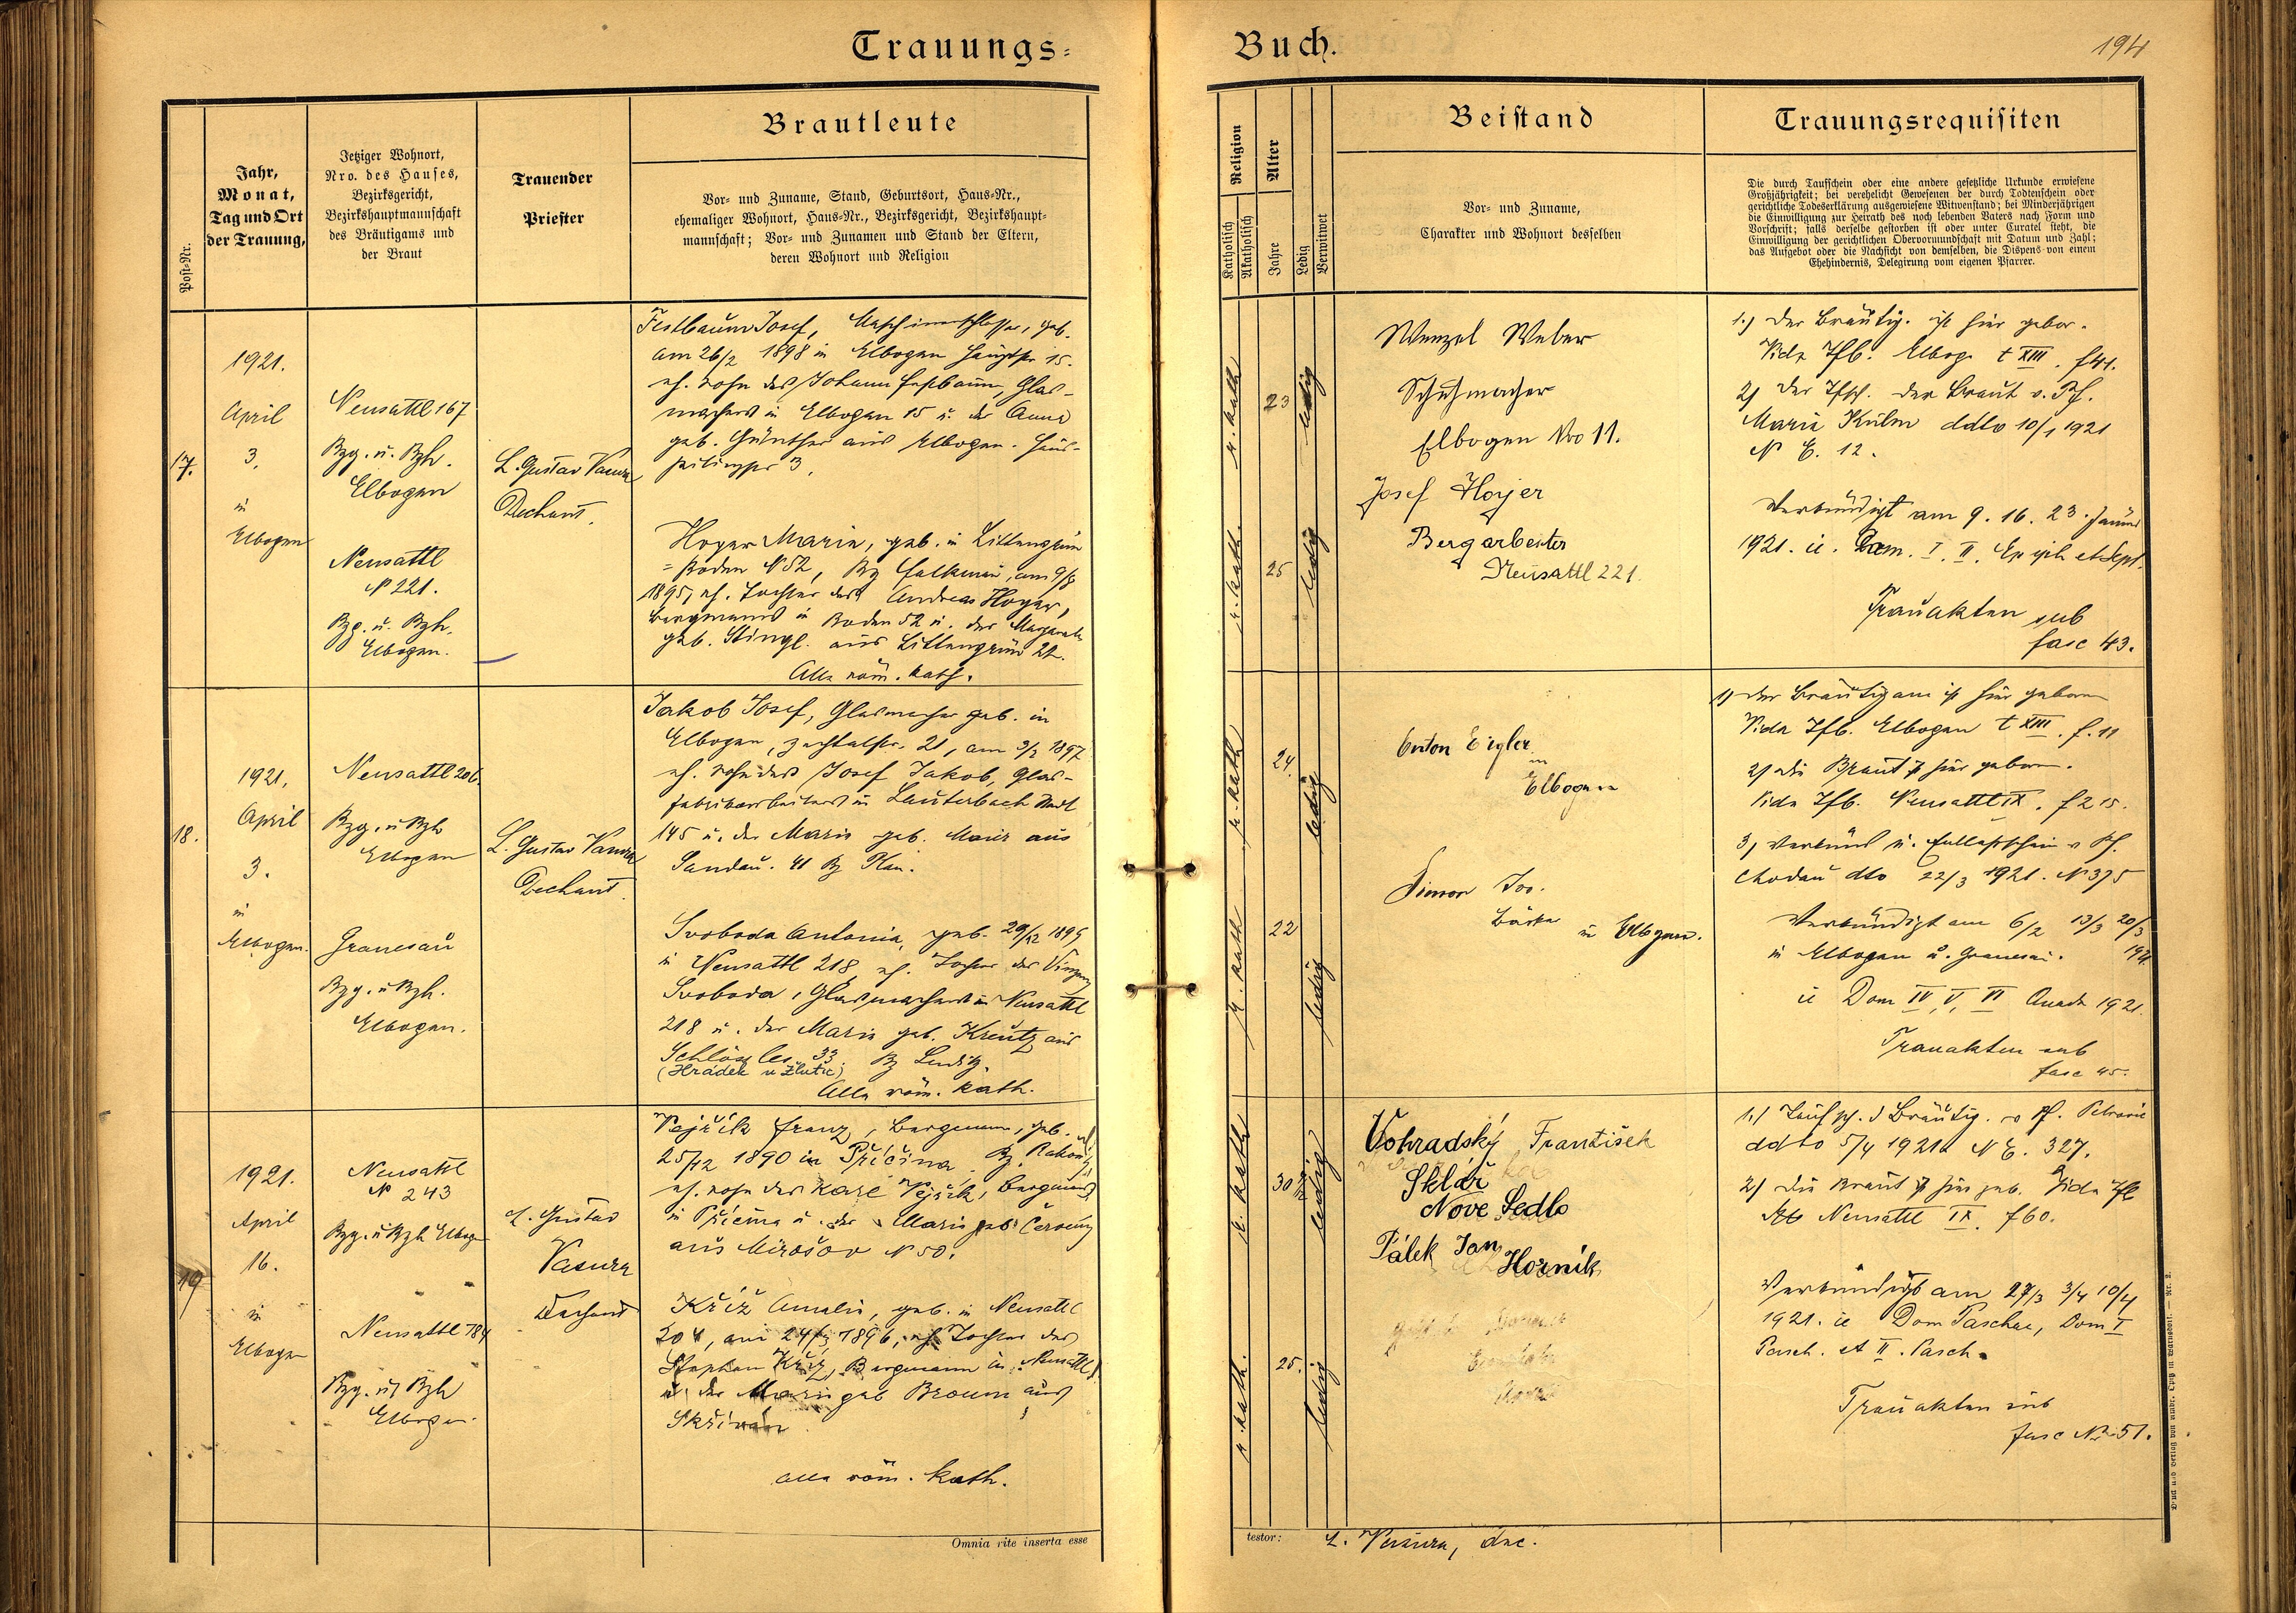 Trauungs-
Post-Nr.
Jahr,
Monat,
Tag und Ort
der Trauung,
Jetziger Wohnort,
Nro. des Hauses,
Bezirksgericht,
Bezirkshauptmannschaft
des Bräutigams und
der Braut
Trauender
Priester
Brautleute
Vor- und Zuname, Stand, Geburtsort, Haus-Nr.,
ehemaliger Wohnort, Haus-Nr., Bezirksgericht, Bezirkshaupt-
mannschaft; Vor- und Zunamen und Stand der Eltern,
deren Wohnort und Religion
17.
1921.
April
3.
in
Elbogen
Neusattl 167
Bzg. u. Bzh.
Elbogen
Neusattl
N 221.
Bzg. u. Bzh.
Elbogen.
L. Gustav Vasura
Dechant.
Festbaum Josef, Maschinenschlosser, geb.
am 26/2 1898 in Elbogen Hauptstr 15.
eh. Sohn des Johann Festbaum, Glas-
machers in Elbogen 15 u. der Anna
geb. Günther aus Elbogen.
Hoyer Marie, geb. in Littengrün
=Boden N 52, Bz Falkenau, am 9/8
1895, eh. Tochter des Andreas Hoyer,
Bergmanns in Boden 52 u. der Margareta
geb. Stingl. aus Littengrün 22.
Alle röm. kath.
18.
1921.
April
3.
in
Elbogen.
Neusattl 206.
Bzg. u Bzh
Elbogen
Granesau
Bzg. u Bzh.
Elbogen.
L. Gustav Vasura
Dechant.
Jakob Josef, Glasmacher geb. in
Elbogen, Zechtalstr. 21, am 3/2 1897
eh. Sohn des Josef Jakob, Glas-
fabriksarbeiters in Lauterbach Stadt
145 u. der Marie geb. Maier aus
Sandau. 41 Bz Plan.
Svoboda Antonia, geb. 29/12 1899
in Neusattl 218, eh. Tochter des Vinzenz
Svoboda, Glasmachers in Neusattl
218 u. der Marie geb. Kreutz aus
Schlössles 33. Bz Luditz.
(Hrádek u Žlutic)
Alle röm. kath.
19
1921.
April
16.
in
Elbogen
Neusattl
N 243
Bzg. u Bzh Elbogen
Neusattl 184
Bzg. u Bzh
Elbogen.
L. Gustav
Vasura
Dechant
Vejřík Franz, Bergmann, geb.
25/12 1890 in Příčina. Bz. Rakonitz
eh. Sohn des Karl Vejřík, Bergmanns
in Příčina u. der Marie geb. Červený
aus Mirošov N 50.
Kříž Amalie, geb. in Neusattl
204, am 1896, eh Tochter des
Stephan Kříž, Bergmann in Neusattl
u. der Marie geb Broum aus
Skřiwan
alle röm. kath.
Omnia rite inserta esse
Buch.
194
Religion
Katholisch
Akatholisch
Alter
Jahre
Ledig
Verwitwet
Beistand
Vor- und Zuname,
Charakter und Wohnort desselben
Trauungsrequisiten
Die durch Taufschein oder eine andere gesetzliche Urkunde erwiesene
Großjährigkeit; bei verehelicht Gewesenen der durch Todtenschein oder
gerichtliche Todeserklärung ausgewiesene Witwenstand; bei Minderjährigen
die Einwilligung zur Heirath des noch lebenden Vaters nach Form und
Vorschrift; falls derselbe gestorben ist oder unter Curatel steht, die
Einwilligung der gerichtlichen Obervormundschaft mit Datum und Zahl;
das Aufgebot oder die Nachsicht von demselben, die Dispens von einem
Ehehindernis, Delegirung vom eigenen Pfarrer.
r. kath
23
ledig
r. kath.
25
ledig
Wenzel Weber
Schuhmacher
Elbogen Nro 11.
Josef Hoyer
Bergarbeiter
Neusattl 221.
1.) Der Bräutig. ist hier gebor.
Vide Tfb. Elbog. t XIII. f 41.
2) Der Tfsch. der Braut v. Pf.
Maria Kulm ddto 10/1 1921
N E. 12.
Verkündigt am 9. 16. 23. Januar
1921. ie. Dom. I. II. Epiph et Sept.
Trauakten sub
fasc 43.
r. kath
24.
ledig
r. kath
22
ledig
Anton Eigler
in
Elbogen
Simon Jos.
Bäcker in Elbogen.
1) Der Bräutigam ist hier geboren
Vide Tfb. Elbogen t XIII. f. 11
2) Die Braut ist hier geboren.
Vide Tfb. Neusattl IX. f 215.
3) Verkünd u. Entlaßschein v Pf.
Chodau dto 22/3 1921. N 375
Verkündigt am 6/2 13/3 20/3
in Elbogen u. Granesau. 1921.
ie Dom IV, V, VI Quadr 1921.
Trauakten sub
fasc 45.
r. kath
30
ledig
r. kath.
25.
ledig
Vohradský František
Sklář
Nové Sedlo
Pálek Jan
Horník
1.) Taufsch. d Bräutig. v Pf. Petrovic
ddto 5/4 1921 N E. 327.
2) Die Braut ist hier geb. Vide Tfb
Neusattl IX. f 60.
Verkündigt am 27/3 3/4 10/4
1921. ie Dom Paschae, Dom I
Pasch. et II. Pasch.
Trauakten sub
fasc N 51.
testor:
L. Vasura, dec.